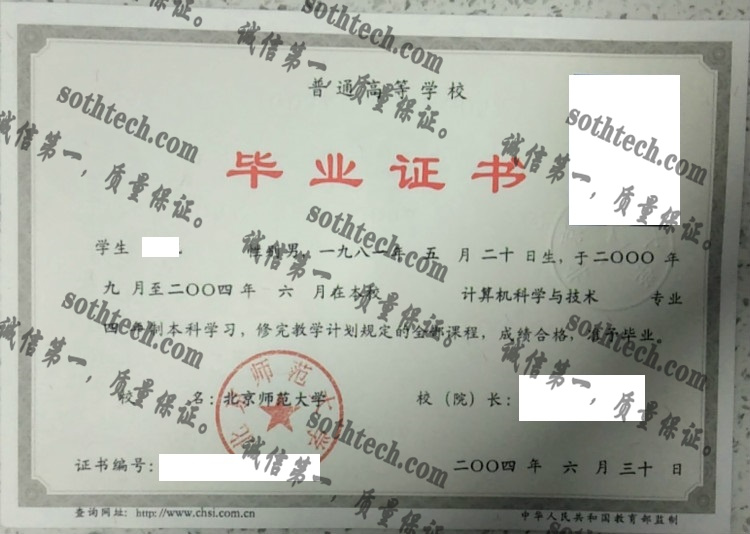 普通高等学校
毕业证书
学生 性别男,一九八一年 五 月二十日生,于二〇〇〇年
九 月至二〇〇四年 六 月在本校 计算机科学与技术 专业
四 年制本科学习,修完教学计划规定的全部课程,成绩合格,准予毕业.
校 名:北京师范大学 校(院)长:
北京师范大学
证书编号: 二〇〇四年 六月三十日
查询网址: http://www.chsi.com.cn 中华人民共和国教育部监制
sothtech.com
诚信第一,质量保证。
sothtech.com
诚信第一,质量保证。
sothtech.com
诚信第一,质量保证。
sothtech.com
诚信第一,质量保证。
sothtech.com
诚信第一,质量保证。
sothtech.com
诚信第一,质量保证。
sothtech.com
诚信第一,质量保证。